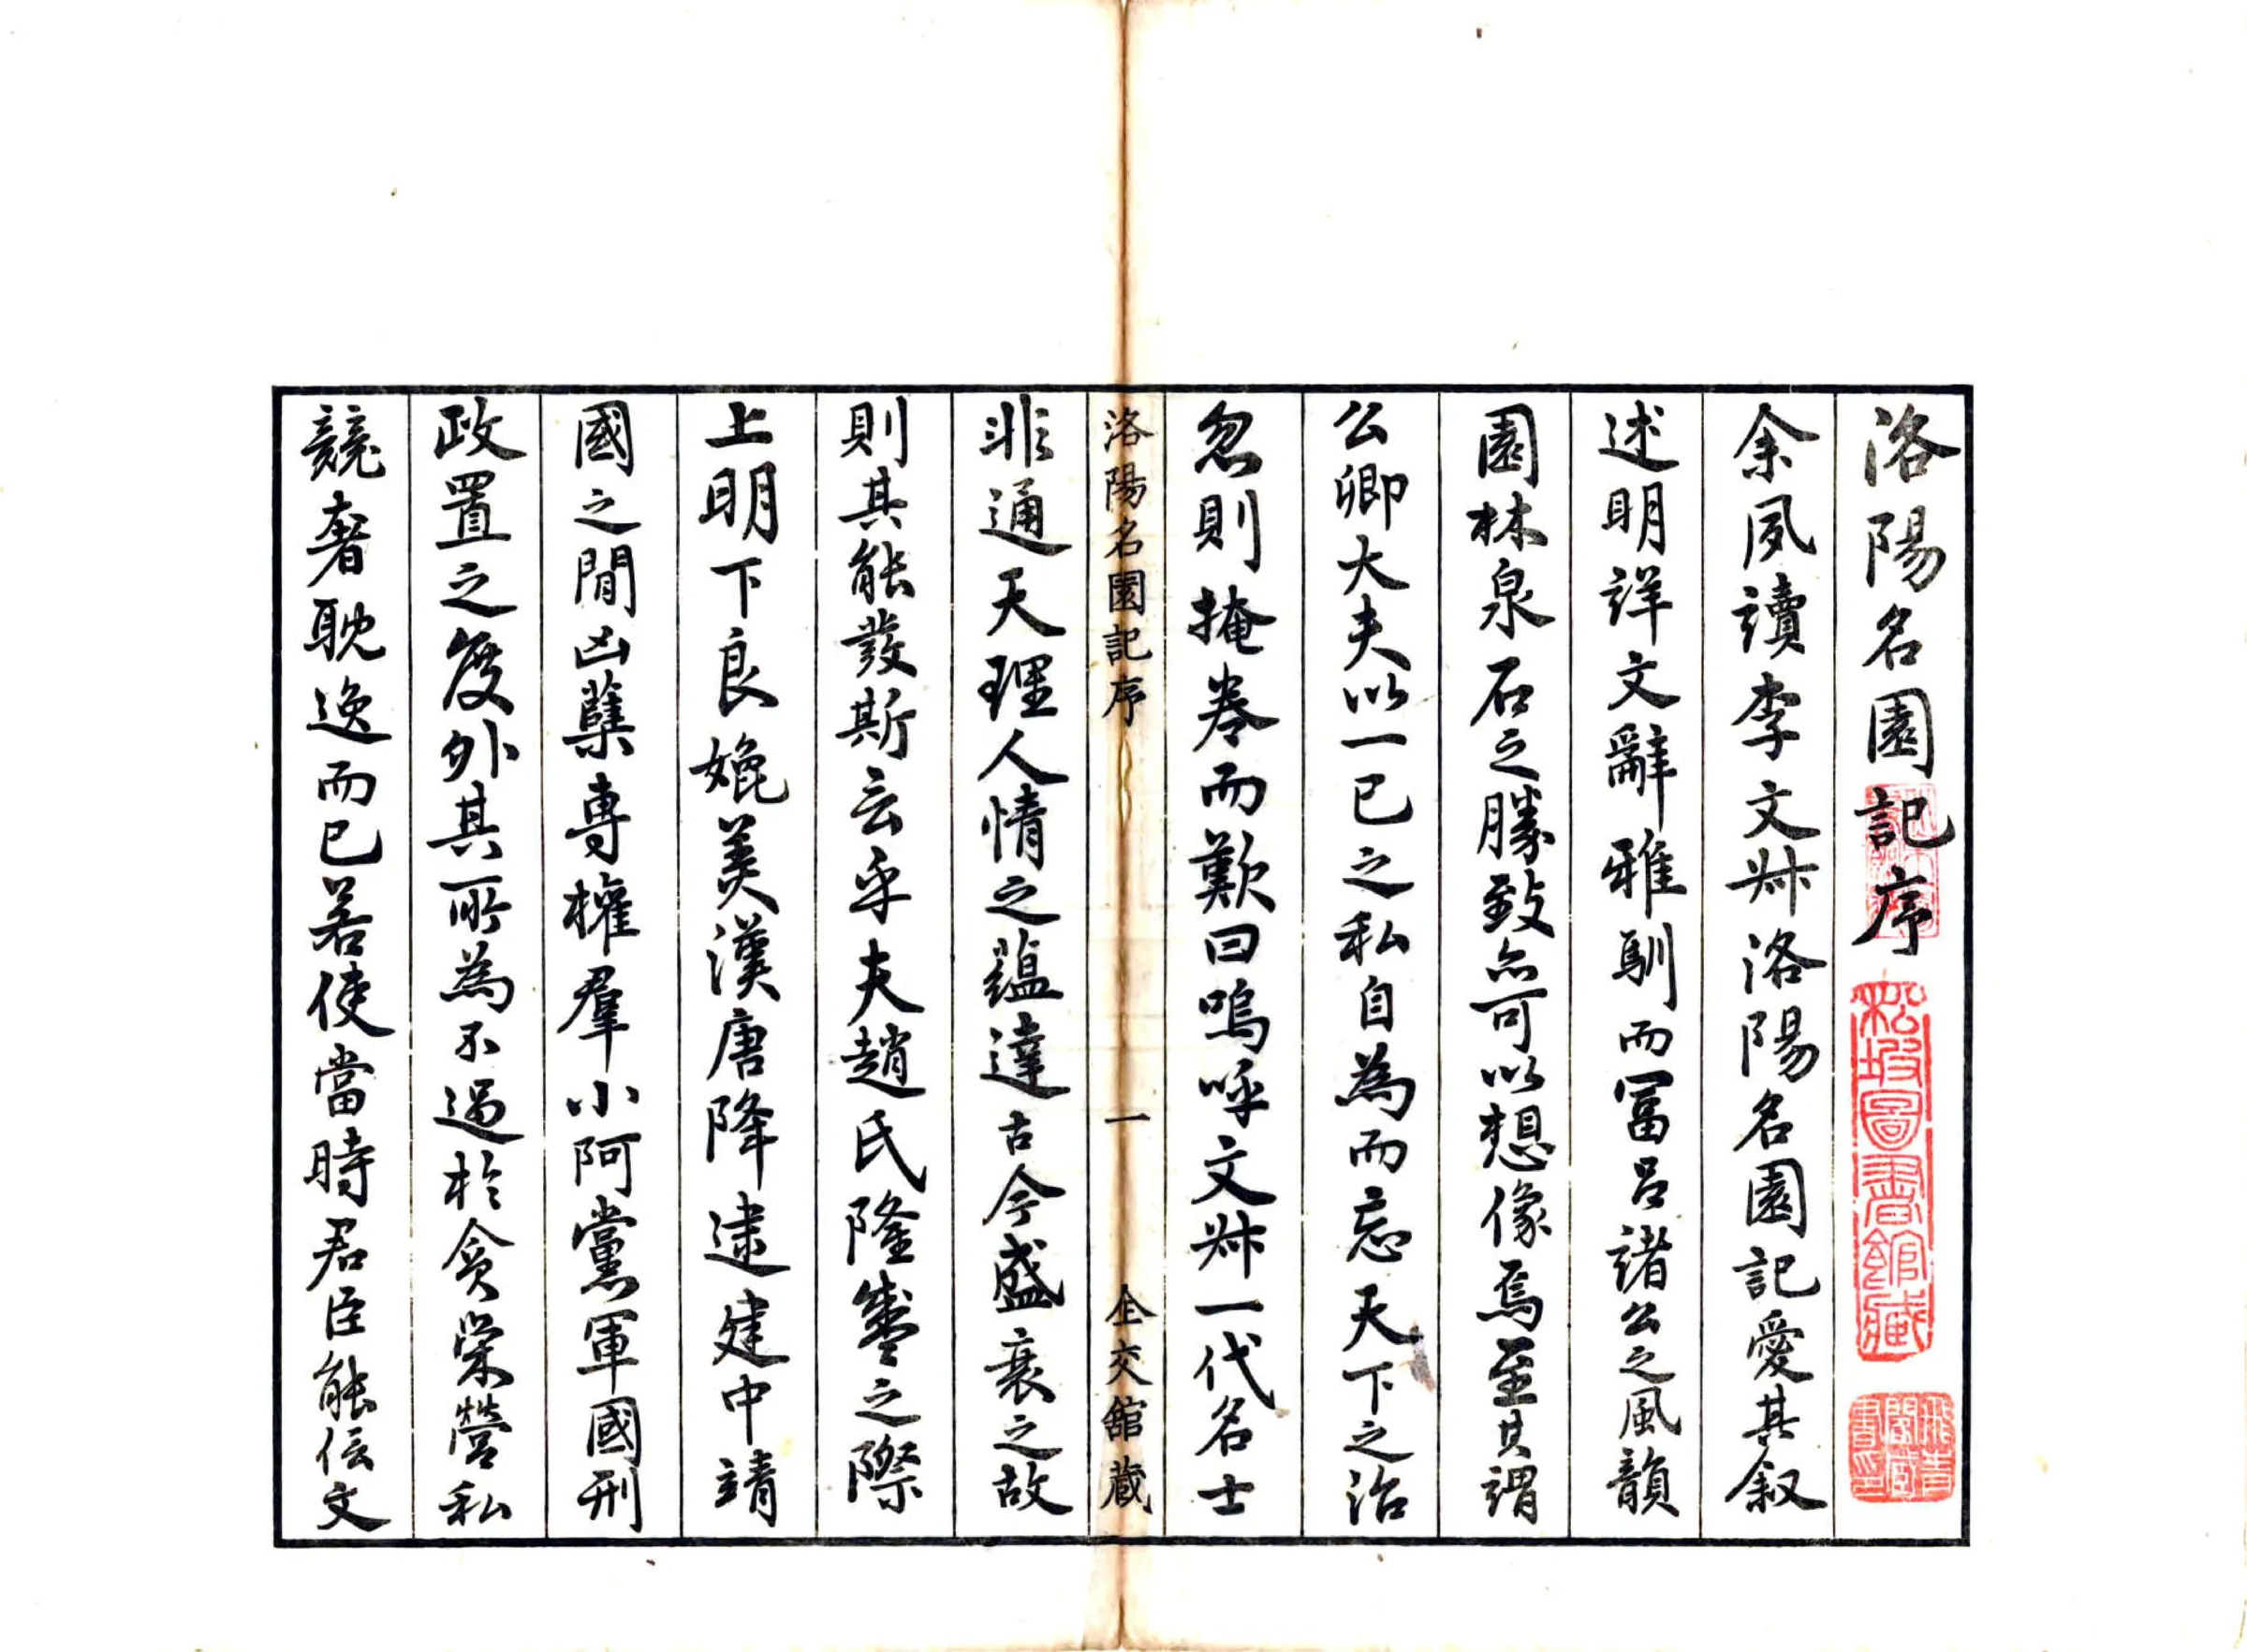 洛陽名園記序
余夙讀李文叔洛陽名園記愛其叙
述明詳文辭雅馴而冨呂諸公之風韻
園林泉石之勝致亦可以想像焉至其謂
公卿大夫以一已之私自為而忘天下之治
忽則掩卷而歎曰嗚呼文叔一代名士
洛陽名園記序
一
仝交館蔵
非通天理人情之蘊達古今盛衰之故
則其能發斯言乎夫趙氏隆盛之際
上明下良媲美漢唐降逮建中靖
國之間凶孽専權羣小阿黨軍國刑
政置之度外其所為不過於貪榮營私
競奢耽逸而已若使當時君臣能信文
松坡圖書館藏
飛青閣藏書印